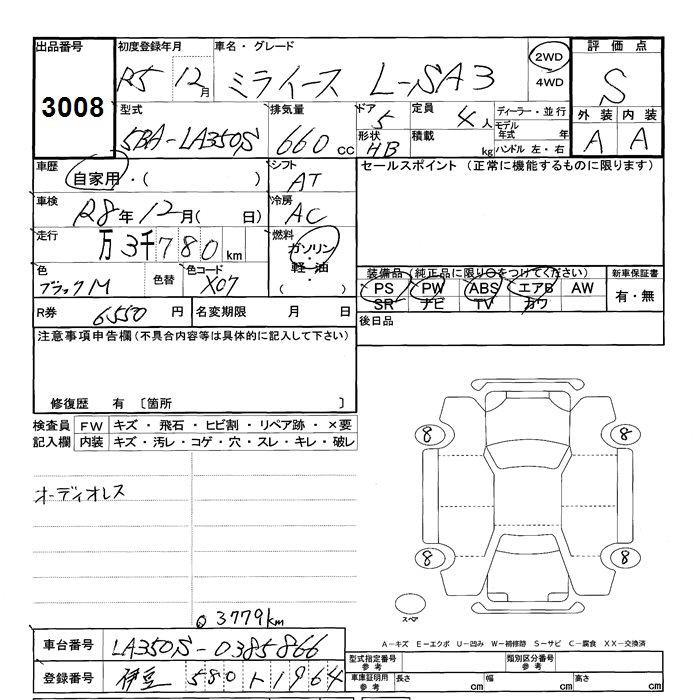 出品番号 初度登録年月 車名・グレード 評価点
3008 R5 12月 ミライース L-SA3 2WD S
4WD
型式 排気量 ドア 定員 ディーラー・並行 外装 内装
5BA-LA350S 660cc 5 4人 モデル年式 年 A A
形状 HB 積載 kg ハンドル 左・右
車歴 シフト セールスポイント (正常に機能するものに限ります)
自家用・( ) AT
車検 冷房
R8年12月( 日) AC
走行 燃料
万3千780km ガソリン・軽油
( )
色 色替 色コード 装備品 (純正品に限り○をつけてください) 新車保証書
ブラックM X07 PS PW ABS エアB AW 有・無
SR ナビ TV カワ
R券 6550円 名変期限 月 日 後日品
注意事項申告欄(不具合内容等は具体的に記入して下さい)
修復歴 有 〔箇所 〕
検査員 FW キズ・飛石・ヒビ割・リペア跡・×要
記入欄 内装 キズ・汚レ・コゲ・穴・スレ・キレ・破レ
8 8
オーディオレス
8 8
スペア
3779km
A−キズ E−エクボ U−凹み W−補修跡 S−サビ C−腐食 XX−交換済
車台番号 LA350S-0385866 型式指定番号 参考 類別区分番号 参考
登録番号 伊豆 580 い 1964 車庫証明用 参考 長さ cm 幅 cm 高さ cm